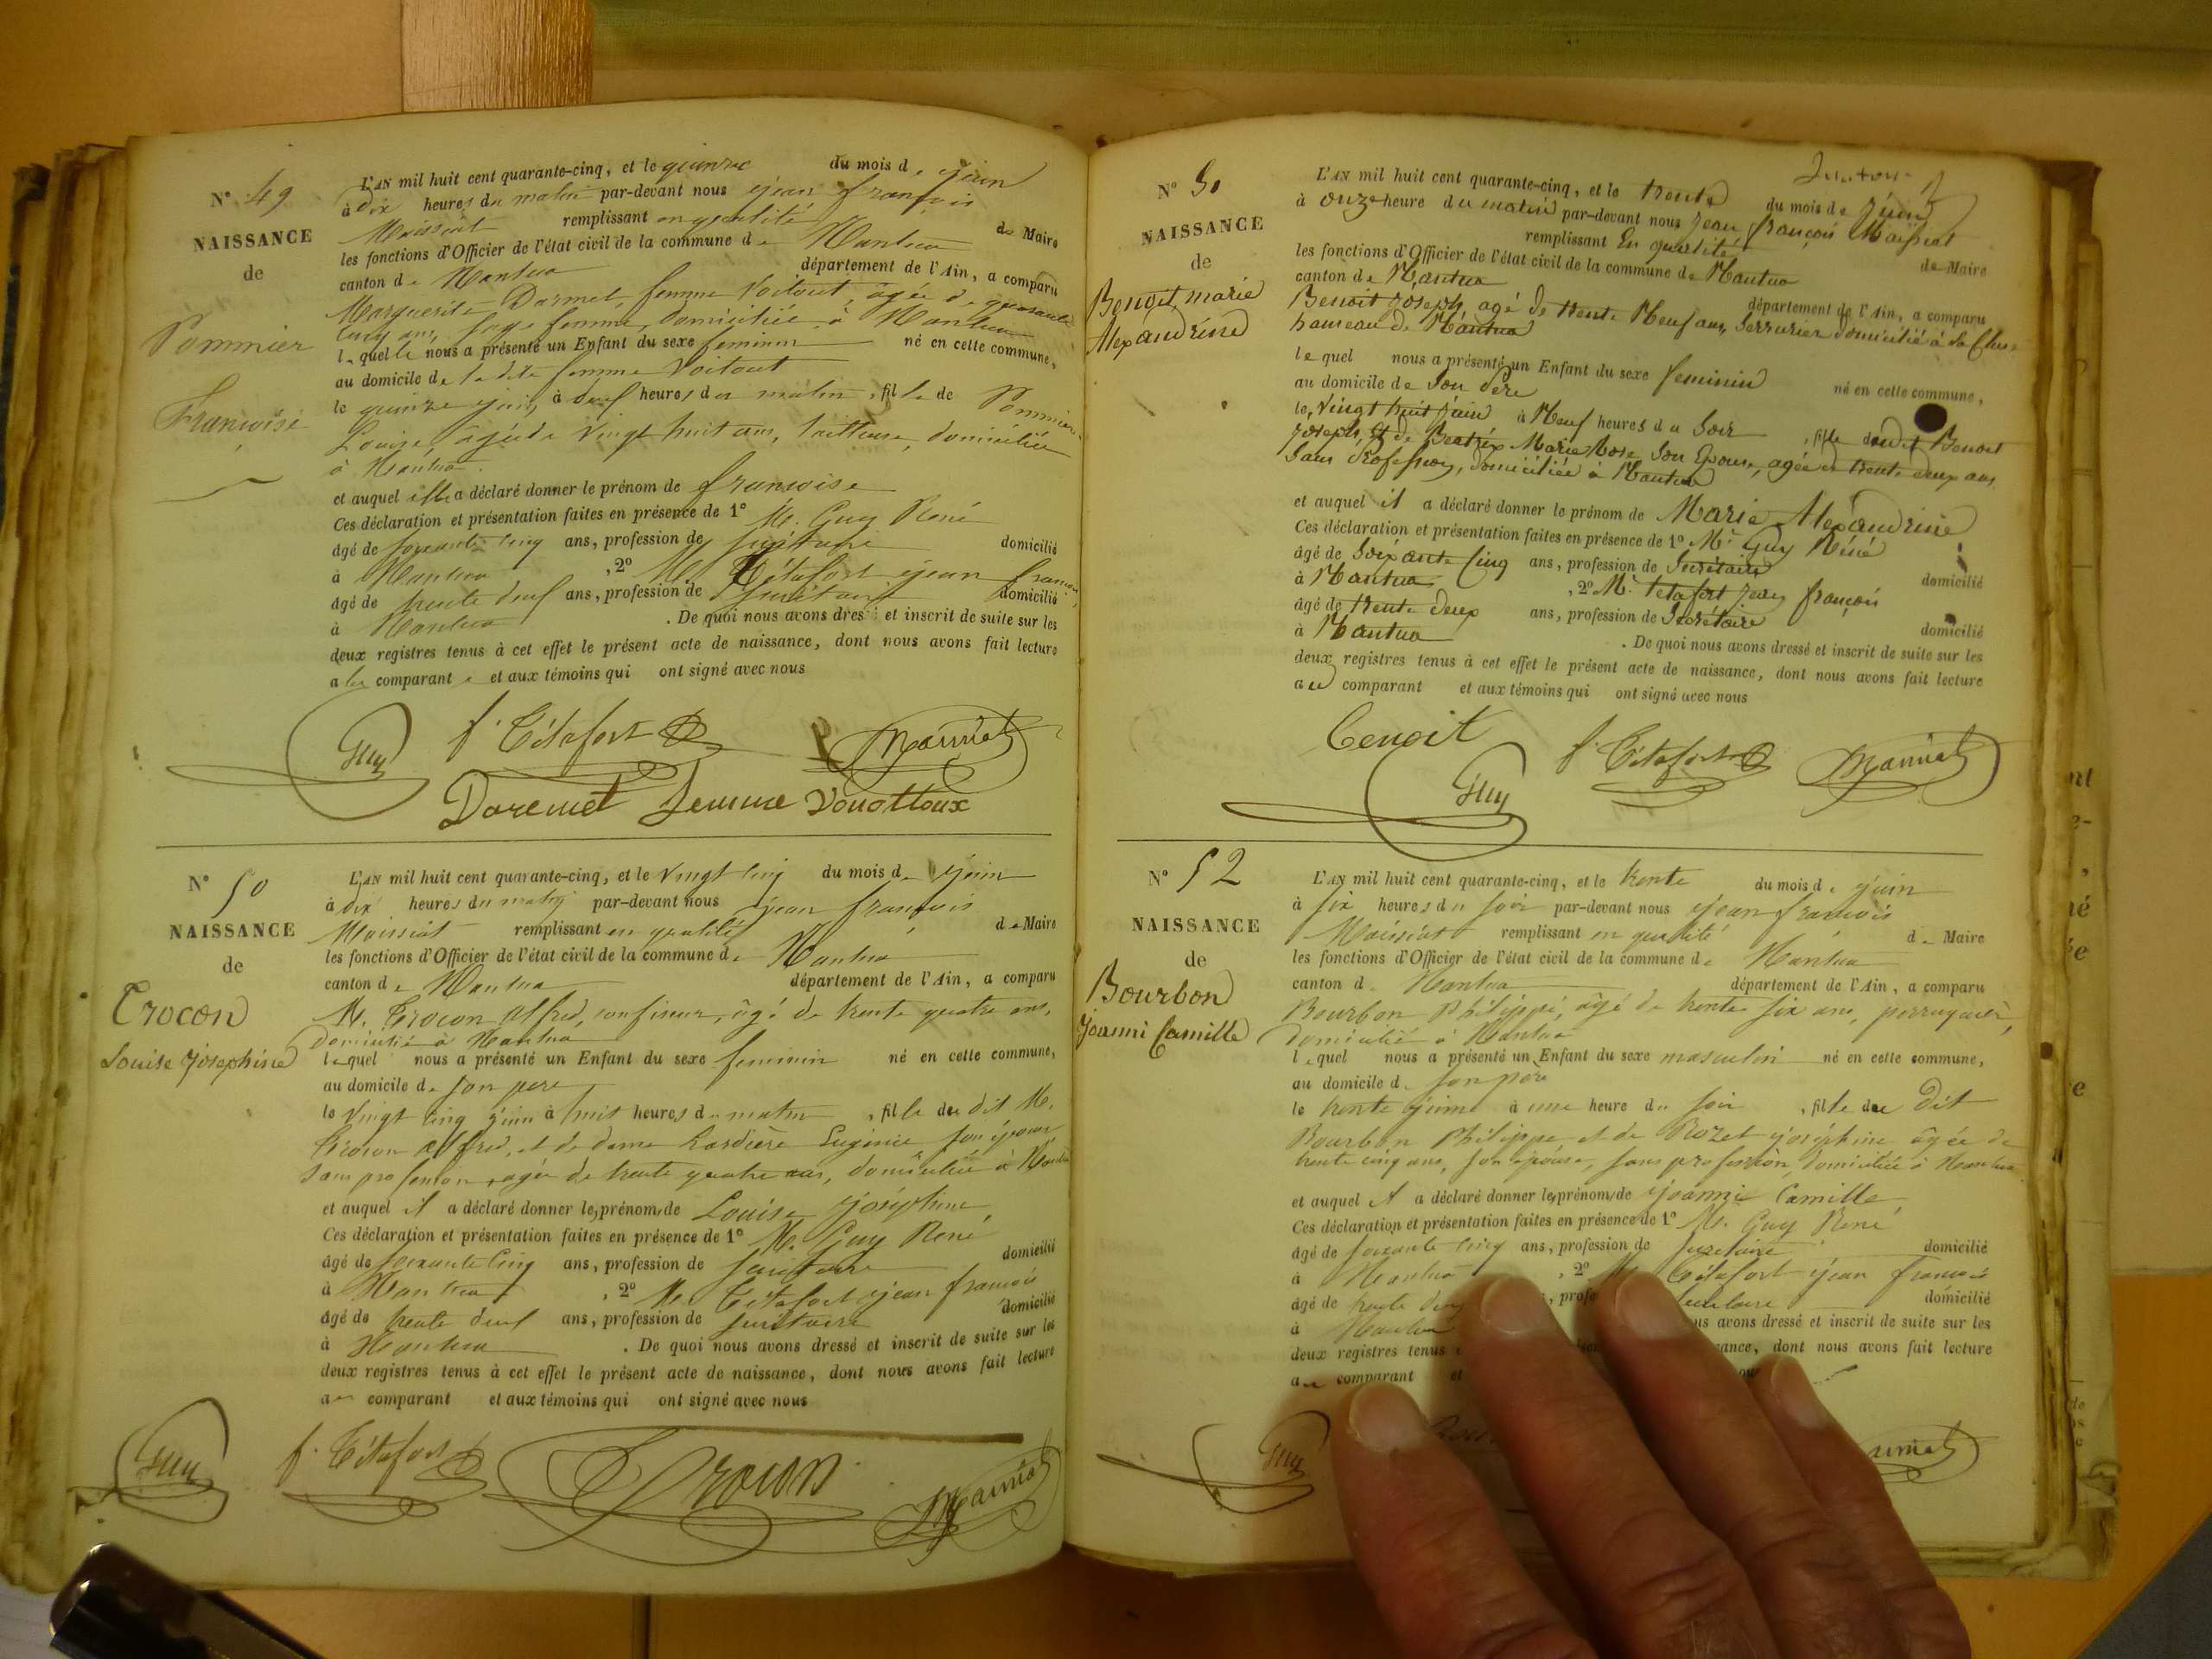 N° 49
NAISSANCE
de
Pommier
Françoise
L'AN mil huit cent quarante-cinq, et le quinze du mois de juin
à dix heures du matin par-devant nous jean françois
Maissiat remplissant en qualité de Maire
les fonctions d'Officier de l'état civil de la commune de Nantua
canton de Nantua département de l'Ain, a comparu
Marguerite Darmet, femme Voitout, âgée de quarante
cinq ans, sage femme, domiciliée à Nantua
laquelle nous a présenté un Enfant du sexe feminin né en cette commune,
au domicile de la dite femme Voitout
le quinze juin, à heures du matin, fille de Pommier
Louise, âgée de vingt huit ans, tailleuse, domiciliée
à Nantua.
et auquel elle a déclaré donner le prénom de françoise
Ces déclaration et présentation faites en présence de 1° M. Guy René
âgé de soixante cinq ans, profession de secrétaire domicilié
à Nantua, 2° M. Tétafort jean françois,
âgé de trente deux ans, profession de secrétaire domicilié
à Nantua. De quoi nous avons dressé et inscrit de suite sur les
deux registres tenus à cet effet le présent acte de naissance, dont nous avons fait lecture
a la comparante et aux témoins qui ont signé avec nous
Guy f. Tétafort Maissiat
Daremet femme
N° 50
NAISSANCE
de
Crocon
Louise Joséphine
L'AN mil huit cent quarante-cinq, et le vingt cinq du mois de juin
à dix heures du matin par-devant nous jean françois
Maissiat remplissant en qualité de Maire
les fonctions d'Officier de l'état civil de la commune de Nantua
canton de Nantua département de l'Ain, a comparu
M. Crocon alfred, confiseur, âgé de trente quatre ans,
domicilié à Nantua
lequel nous a présenté un Enfant du sexe feminin né en cette commune,
au domicile de son pere
le vingt cinq juin à huit heures du matin, fille du dit M.
Crocon alfred, et de dame Eugénie son épouse
sans profession, agée de trente quatre ans, domiciliée à Nantua
et auquel il a déclaré donner les prénoms de Louise joséphine,
Ces déclaration et présentation faites en présence de 1° M. Guy René
âgé de soixante cinq ans, profession de secrétaire domicilié
à Nantua, 2° M. Tétafort jean françois
âgé de trente deux ans, profession de secrétaire domicilié
à Nantua. De quoi nous avons dressé et inscrit de suite sur les
deux registres tenus à cet effet le présent acte de naissance, dont nous avons fait lecture
au comparant et aux témoins qui ont signé avec nous
Guy f. Tétafort Crocon Maissiat
N°
NAISSANCE
de
Benoit, marie
Alexandrine
L'AN mil huit cent quarante-cinq, et le trente du mois de juin
à onze heure du matin par-devant nous Jean françois Maissiat
remplissant En qualité de Maire
les fonctions d'Officier de l'état civil de la commune de Nantua
canton de Nantua département de l'Ain, a comparu
Benoit Joseph, agé de trente Neuf ans, Serrurier domicilié à la Cluse
hameau de Nantua
lequel nous a présenté un Enfant du sexe feminin né en cette commune,
au domicile de Son Père
le, vingt huit juin à Neuf heures du Soir, fille dudit Benoit
Joseph, Et de Beatrix Marie Rose Son Epouse, agée de trente deux ans
Sans Profession, domiciliée à Nantua
et auquel il a déclaré donner le prénom de Marie Alexandrine
Ces déclaration et présentation faites en présence de 1° Mr. Guy Réné
âgé de Soixante Cinq ans, profession de Secrétaire domicilié
à Nantua, 2° Mr. Tetafort Jean françois
âgé de trente deux ans, profession de Secrétaire domicilié
à Nantua. De quoi nous avons dressé et inscrit de suite sur les
deux registres tenus à cet effet le présent acte de naissance, dont nous avons fait lecture
au comparant et aux témoins qui ont signé avec nous
Benoit f. Tétafort Maissiat
Guy
N° 52
NAISSANCE
de
Bourbon
Joanni Camille
L'AN mil huit cent quarante-cinq, et le trente du mois de juin
à six heures du soir par-devant nous jean françois
Maissiat remplissant en qualité de Maire
les fonctions d'Officier de l'état civil de la commune de Nantua
canton de Nantua département de l'Ain, a comparu
Bourbon Philippe, âgé de trente six ans, perruquier,
domicilié à Nantua
lequel nous a présenté un Enfant du sexe masculin né en cette commune,
au domicile de son père
le trente juin à une heure du soir, fils du Dit
Bourbon Philippe, et de Rozet joséphine âgée de
trente cinq ans, son épouse, sans profession, domiciliée à Nantua
et auquel il a déclaré donner les prénoms de joanni Camille
Ces déclaration et présentation faites en présence de 1° M. Guy René
âgé de soixante cinq ans, profession de secrétaire domicilié
à Nantua, 2° M. Tétafort jean françois
âgé de trente deux secrétaire domicilié
à Nantua avons dressé et inscrit de suite sur les
deux registres tenus dont nous avons fait lecture
au comparant
Guy